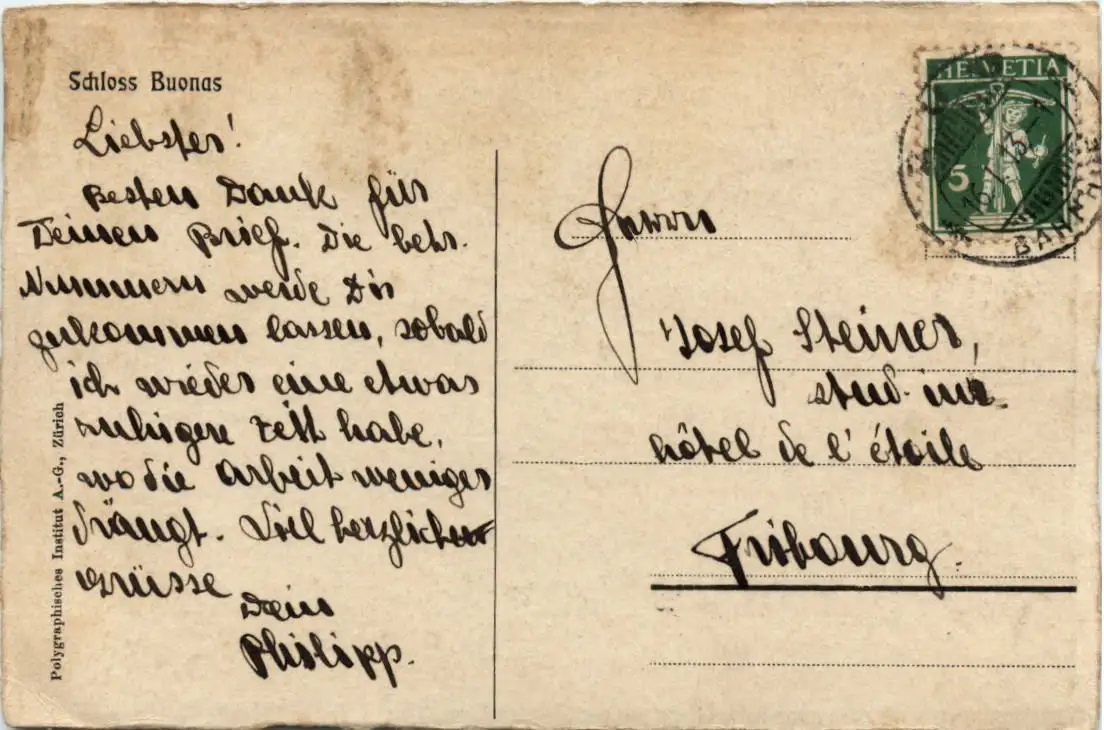 Schloss Buonas
Liebster!
Besten Dank für
Deinen Brief. Die betr.
Nummern werde Dir
zukommen lassen, sobald
ich wieder eine etwas
ruhigere Zeit habe,
wo die Arbeit weniger
drängt. Viel herzliche
Grüsse
Dein
Philipp.
Polygraphisches Institut A.-G., Zürich
HELVETIA
5
BAHNH
Herrn
Josef Steiner,
stud.
hôtel de l'étoile
Fribourg.